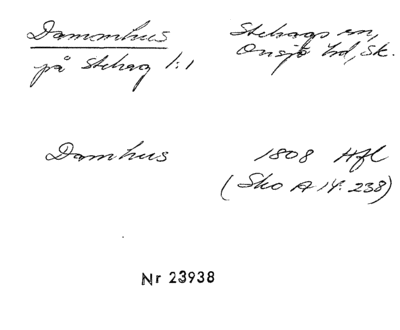 Dammhus
på Stehag 1:1
Stehags sn,
Onsjö hd, Sk.
Damhus
1808 Hfl
(Sko A 14: 238)
Nr 23938